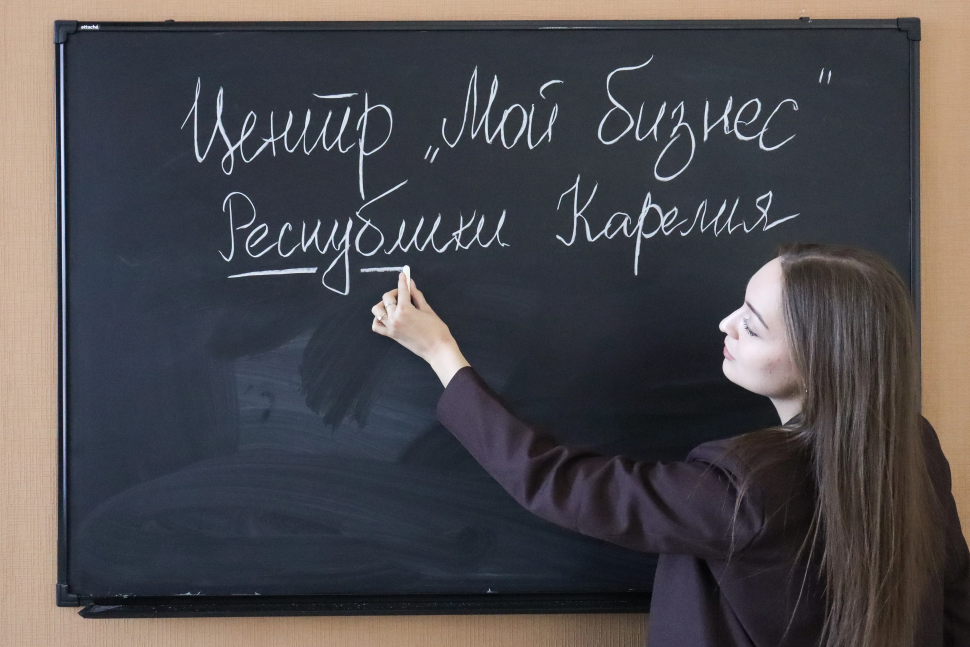 attaché
Центр „Мой бизнес"
Республики Карелия